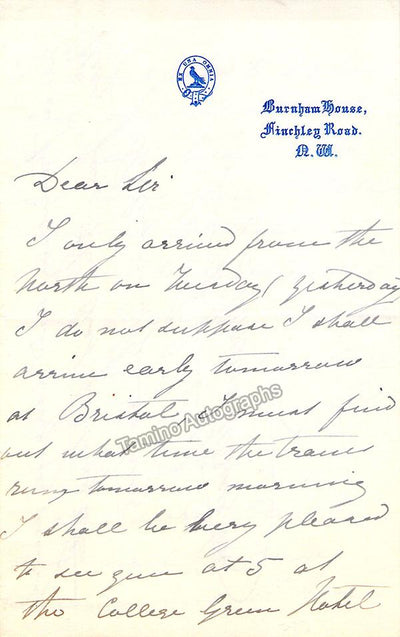 EX UNA OMNIA
Burnham House,
Finchley Road.
N.W.
Dear Sir
I only arrived from the
North on Tuesday (yesterday)
I do not suppose I shall
arrive early tomorrow
at Bristol, I must find
out what time the trains
run tomorrow morning
I shall be very pleased
to see you at 5 at
the College Green Hotel
Tamino Autographs